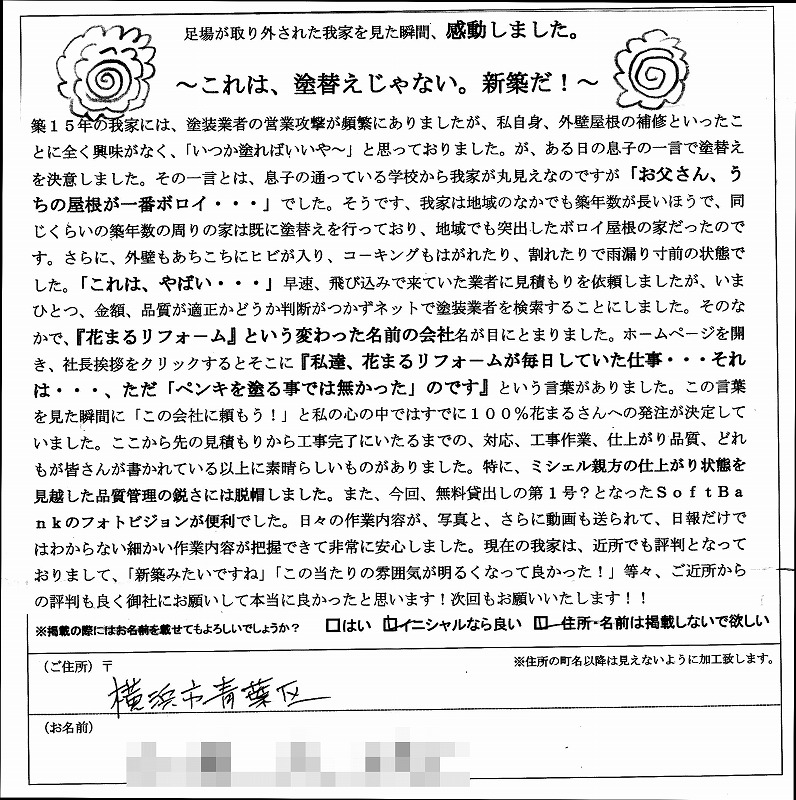 足場が取り外された我家を見た瞬間、感動しました。
～これは、塗替えじゃない。新築だ！～
築１５年の我家には、塗装業者の営業攻撃が頻繁にありましたが、私自身、外壁屋根の補修といったこ
とに全く興味がなく、「いつか塗ればいいや～」と思っておりました。が、ある日の息子の一言で塗替え
を決意しました。その一言とは、息子の通っている学校から我家が丸見えなのですが「お父さん、う
ちの屋根が一番ボロイ・・・」でした。そうです、我家は地域のなかでも築年数が長いほうで、同
じくらいの築年数の周りの家は既に塗替えを行っており、地域でも突出したボロイ屋根の家だったので
す。さらに、外壁もあちこちにヒビが入り、コーキングもはがれたり、割れたりで雨漏り寸前の状態で
した。「これは、やばい・・・」早速、飛び込みで来ていた業者に見積もりを依頼しましたが、いま
ひとつ、金額、品質が適正かどうか判断がつかずネットで塗装業者を検索することにしました。そのな
かで、『花まるリフォーム』という変わった名前の会社名が目にとまりました。ホームページを開
き、社長挨拶をクリックするとそこに『私達、花まるリフォームが毎日していた仕事・・・それ
は・・・、ただ「ペンキを塗る事では無かった」のです』という言葉がありました。この言葉
を見た瞬間に「この会社に頼もう！」と私の心の中ではすでに１００％花まるさんへの発注が決定して
いました。ここから先の見積もりから工事完了にいたるまでの、対応、工事作業、仕上がり品質、どれ
もが皆さんが書かれている以上に素晴らしいものがありました。特に、ミシェル親方の仕上がり状態を
見越した品質管理の鋭さには脱帽しました。また、今回、無料貸出しの第１号？となったＳｏｆｔＢａ
ｎｋのフォトビジョンが便利でした。日々の作業内容が、写真と、さらに動画も送られて、日報だけで
はわからない細かい作業内容が把握できて非常に安心しました。現在の我家は、近所でも評判となって
おりまして、「新築みたいですね」「この当たりの雰囲気が明るくなって良かった！」等々、ご近所から
の評判も良く御社にお願いして本当に良かったと思います！次回もお願いいたします！！
※掲載の際にはお名前を載せてもよろしいでしょうか？ □はい □イニシャルなら良い □住所・名前は掲載しないで欲しい
（ご住所）〒 ※住所の町名以降は見えないように加工致します。
横浜市青葉区
（お名前）